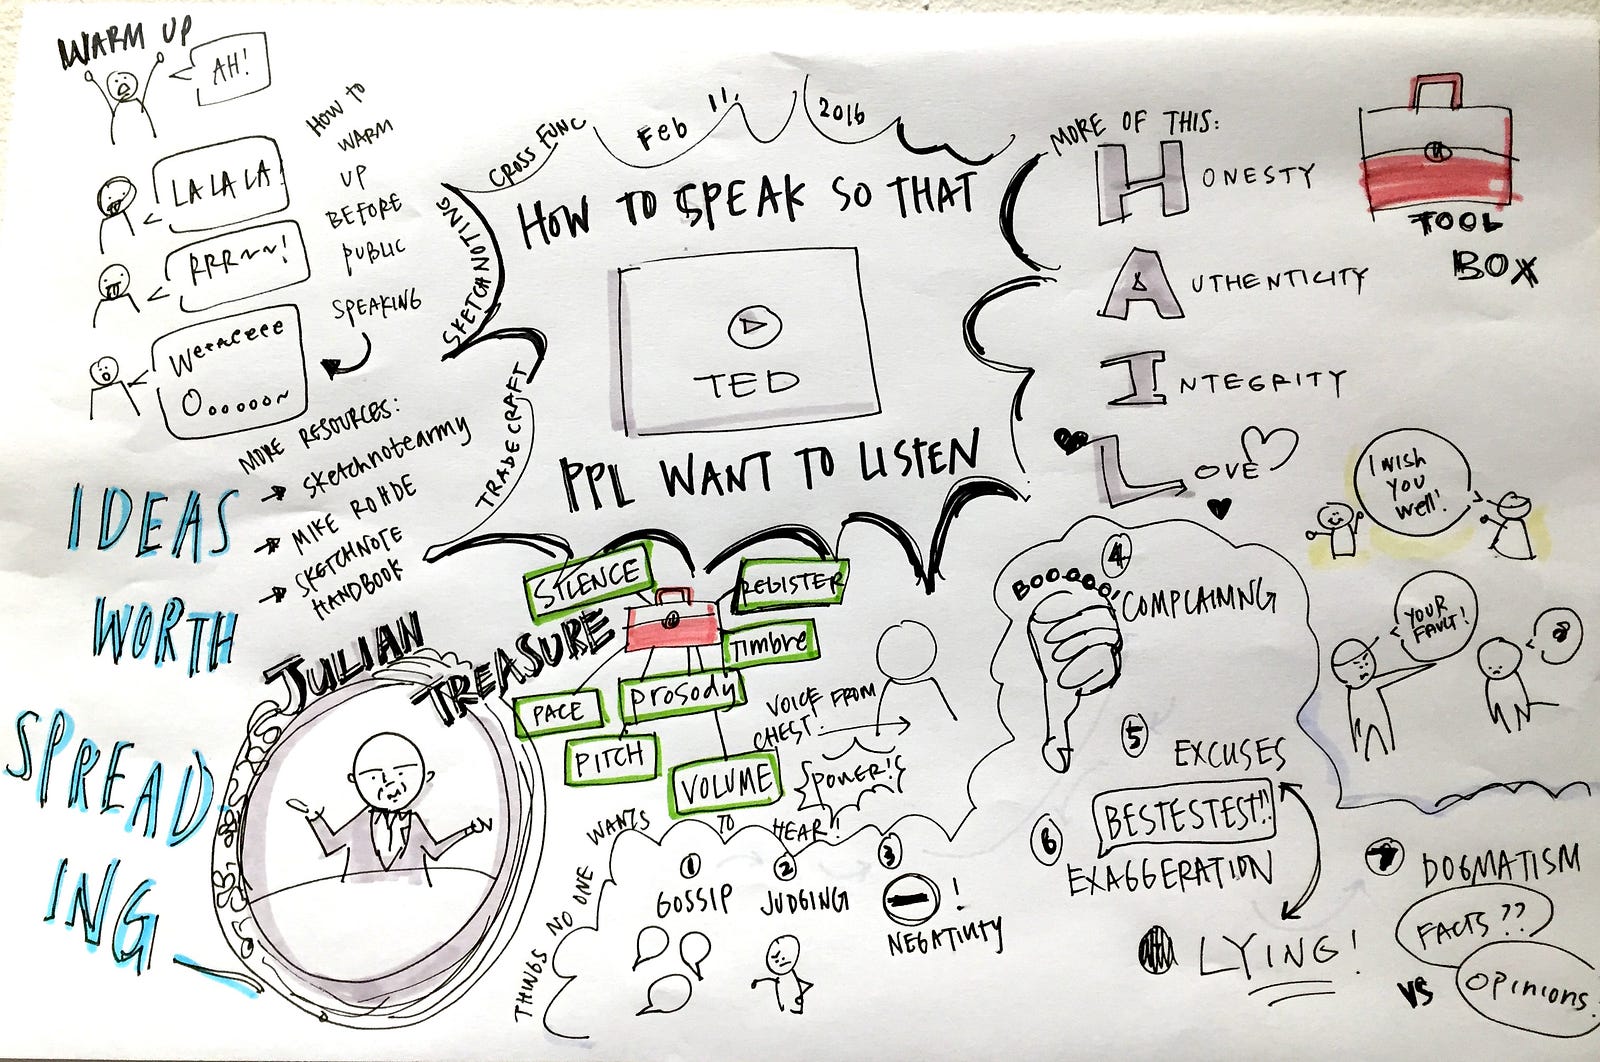 WARM UP
AH!
LA LA LA!
RRR~~!
Weeaceeee
Oooooo~
HOW TO
WARM
UP
BEFORE
PUBLIC
SPEAKING
MORE RESOURCES:
→ sketchnotearmy
→ MIKE ROHDE
→ SKETCHNOTE
HANDBOOK
IDEAS
WORTH
SPREAD
ING
CROSS FUNC
Feb 11, 2016
SKETCHNOTING
TRADECRAFT
HOW TO SPEAK SO THAT
TED
PPL WANT TO LISTEN
MORE OF THIS:
HONESTY
AUTHENTICITY
INTEGRITY
LOVE
TOOL
BOX
I WISH
YOU
Well!
YOUR
FAULT!
JULIAN
TREASURE
SILENCE
REGISTER
Timbre
Prosody
PACE
PITCH
VOLUME
VOICE FROM
CHEST!
POWER!
THINGS NO ONE WANTS TO HEAR!
1
GOSSIP
2
JUDGING
3
!
NEGATIVITY
4
BOOOOOO!
COMPLAINING
5
EXCUSES
BESTESTEST!!
6
EXAGGERATION
LYING!
7
DOGMATISM
FACTS??
VS
OPINIONS